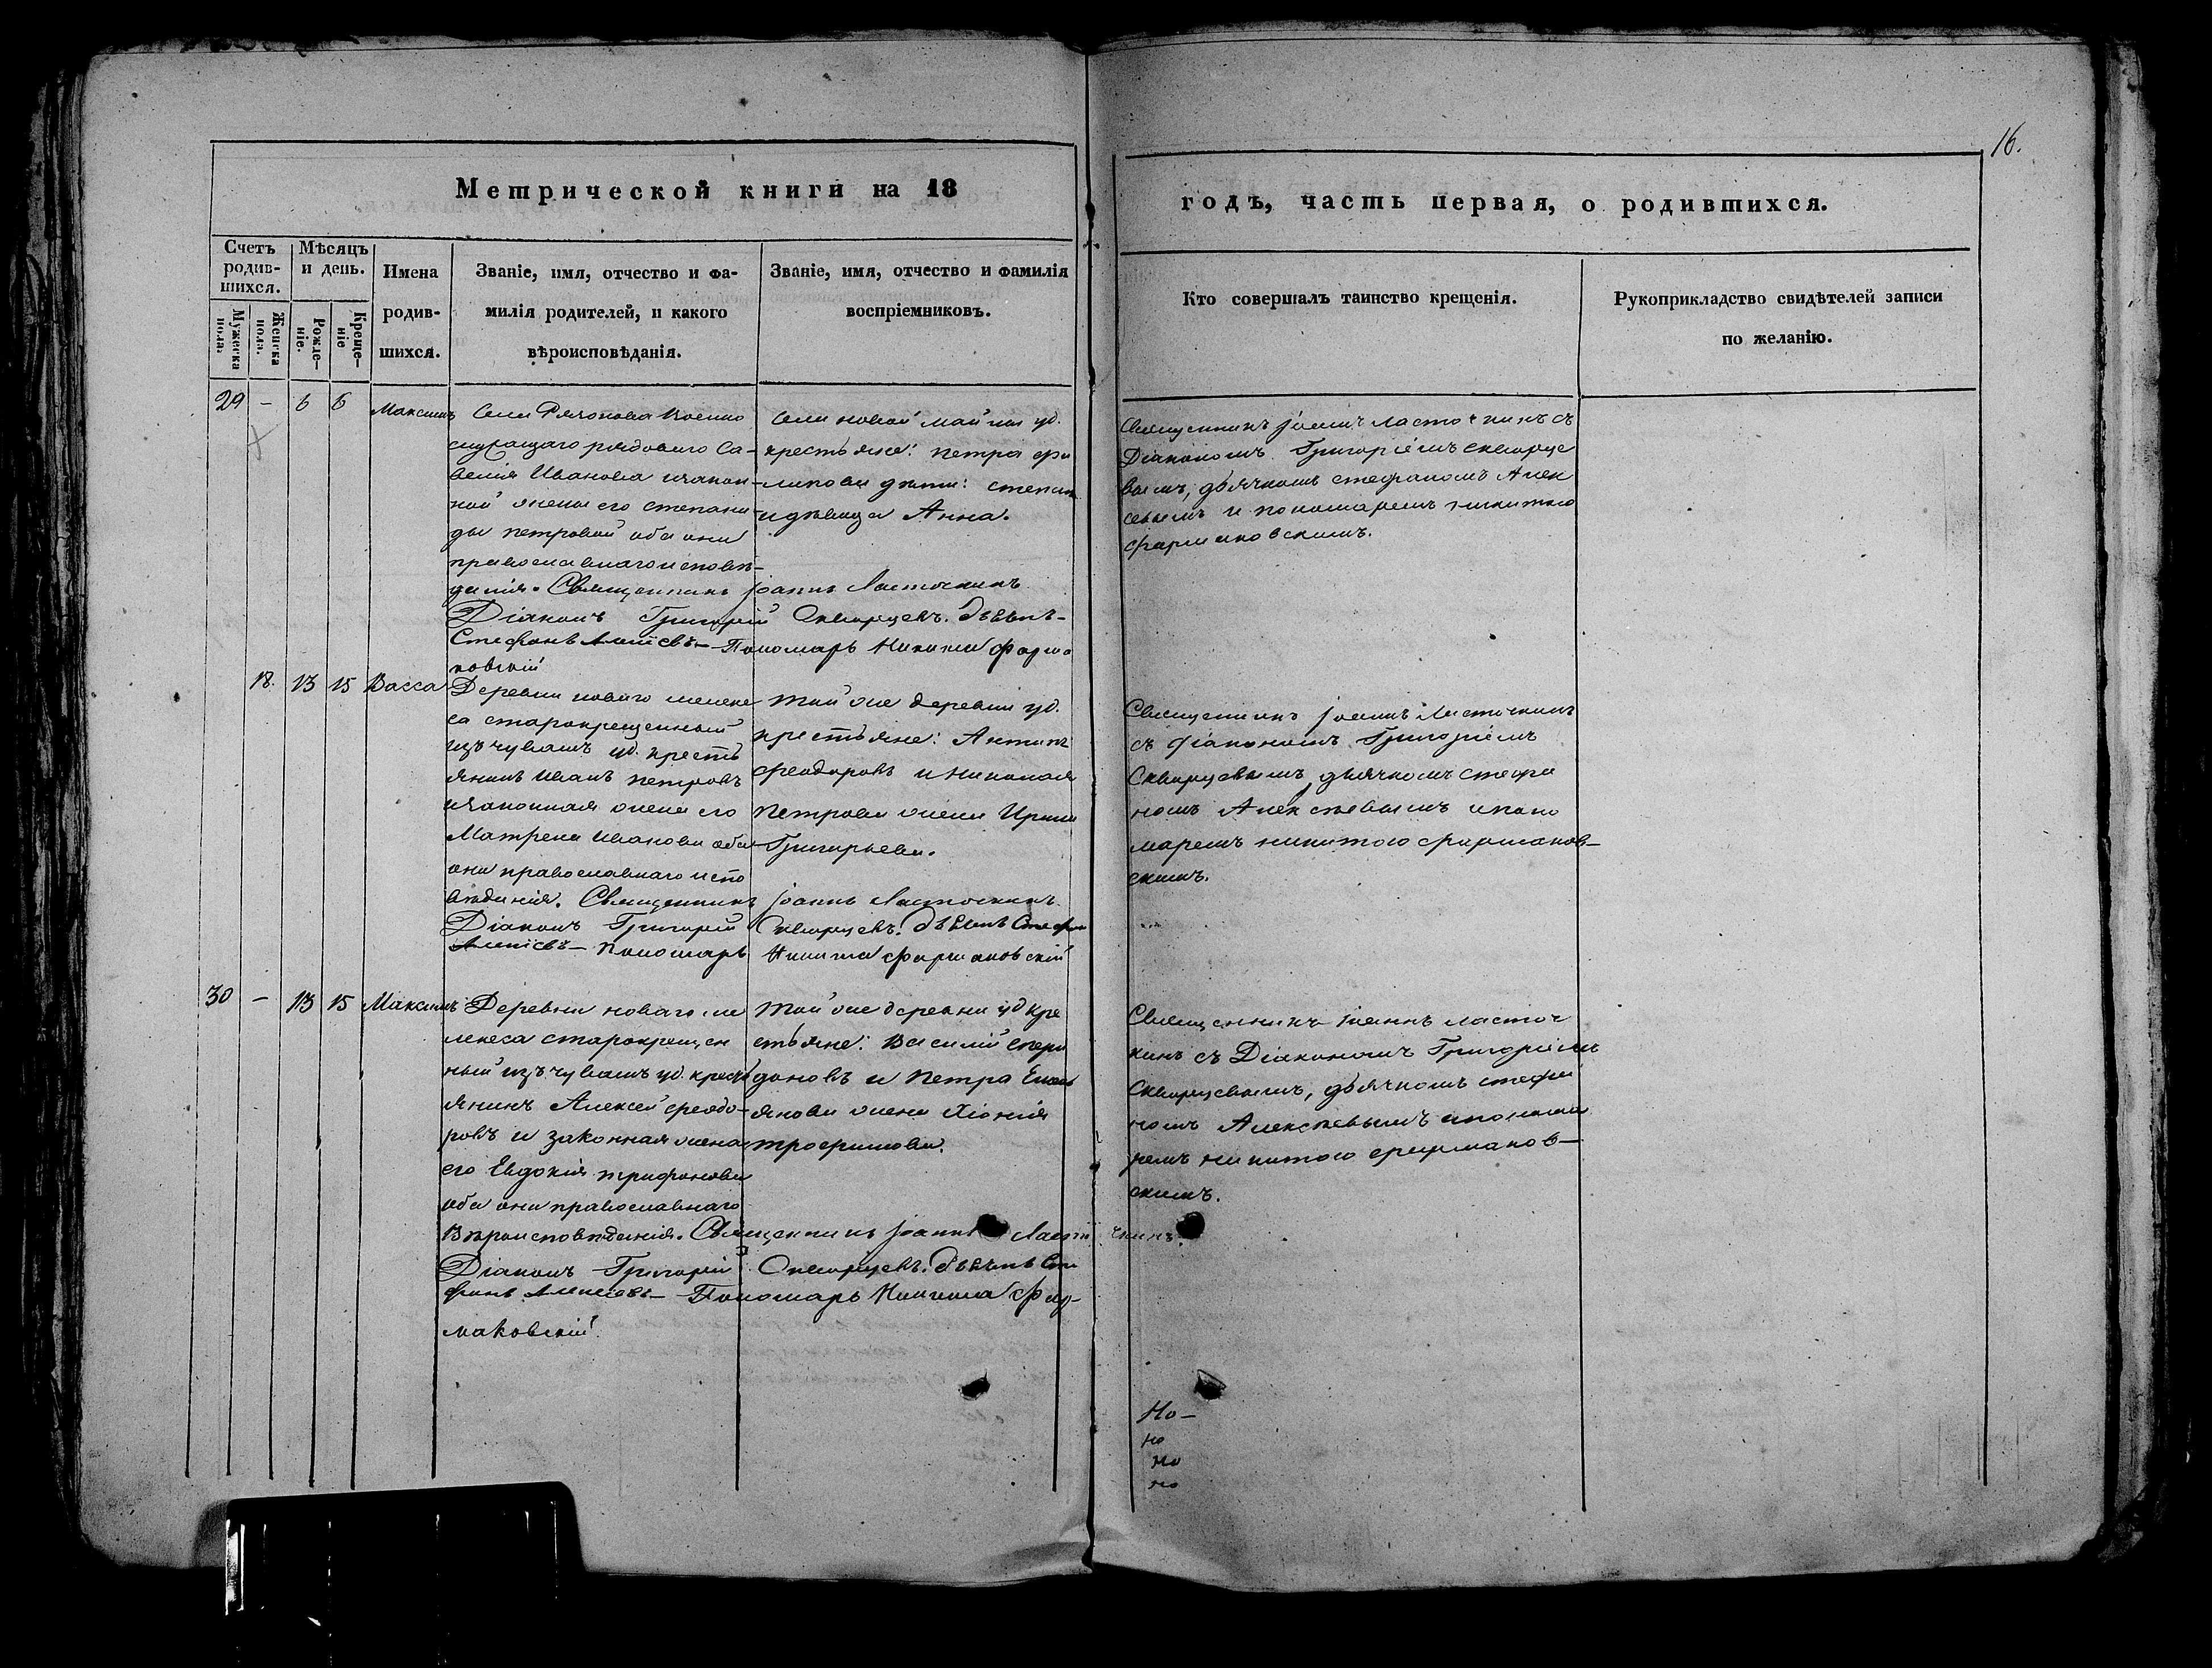 16.
Метрической книги на 18
годъ, часть первая, о родившихся.
Счетъ родив-шихся.
Мужеска пола.
Женска пола.
Мѣсяцъ и день.
Рожде-ніе.
Креще-ніе
Имена родив-шихся.
Званіе, имя, отчество и фа-
милія родителей, и какого
вѣроисповѣданія.
Званіе, имя, отчество и фамилія
воспріемниковъ.
Кто совершалъ таинство крещенія.
Рукоприкладство свидѣтелей записи
по желанію.
29 - 6 6 Максимъ
служащаго рядоваго Са-
велія Иванова и закон-
ной жены его степани-
ды петровой оба они
православнаго исповѣ-
данія. Священникъ Іоаннъ Ласточкинъ
Діаконъ Григорій Скворцевъ.
Пономарь Никита Фарма
ковскій
села новой майны уд.
крестьяне: петра фи
липова дѣти: степан
и дѣвица Анна.
Священникъ Іоаннъ ласточкинъ съ
Діакономъ Григоріемъ скворце
вымъ, дьячкомъ стефаномъ Алек
сеевымъ и пономаремъ никитою
фармаковскимъ.
18. 13 15 Васса
Деревни новаго мелеке
са старокрещенный
изъ чувашъ уд. кресть
янинъ Иванъ петровъ
и законная жена его
Матрена Иванова оба
они православнаго испо
вѣданія. Священникъ Іоаннъ Ласточкинъ
Діаконъ Григорій Скворцевъ.
Пономарь Никита фармаковскій
той же деревни уд.
крестьяне: Антипъ
феодоровъ и николая
петрова жена Ирина
Григорьева.
Священникъ Іоаннъ Ласточкинъ
съ діакономъ Григоріемъ
Скворцевымъ, дьячкомъ стефа
номъ Алексѣевымъ и поно
маремъ никитою фармаков-
скимъ.
30 - 13 15 Максимъ
Деревни новаго ме
лекеса старокрещен
ный изъ чувашъ уд. кресть
янинъ Алексей феодо-
ровъ и законная жена
его Евдокія трифонова
оба они православнаго
Вѣроисповѣданія. Священникъ Іоаннъ Ласточкинъ
Діаконъ Григорій Скворцевъ.
Пономарь Никита Фар-
маковскій
той же деревни уд кре
стьяне: Василій спири
доновъ и петра Емель
янова жена Хіонія
трофимова.
Священникъ Іоаннъ ласточ
кинъ съ Діакономъ Григоріемъ
Скворцевымъ, дьячкомъ стефа
номъ Алексѣевымъ и понома
ремъ никитою фармаков-
скимъ.
Но-
но
но
но